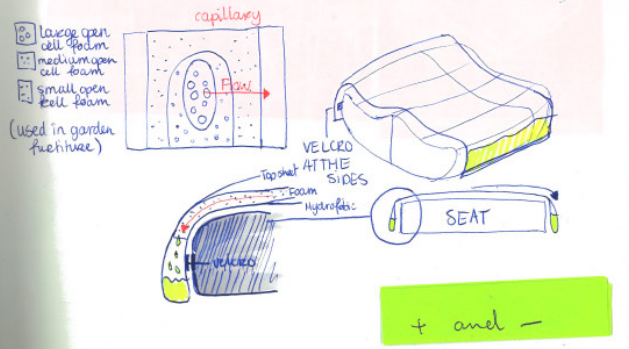 capillary
Large open
cell foam
medium open
cell foam
small open
cell foam
(used in garden
furtiture)
Flow
VELCRO
AT THE
SIDES
Top sheet
Foam
Hydrofobic
VELCRO
SEAT
+ and -